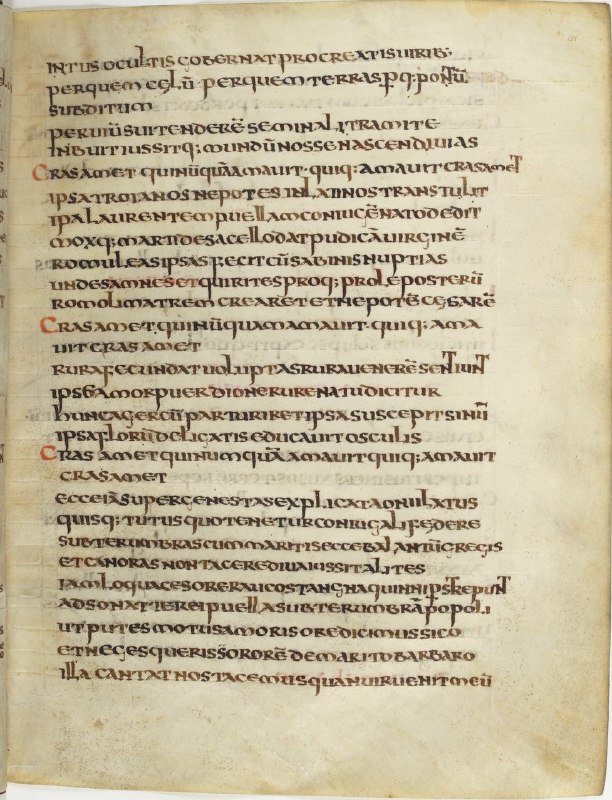 INTUS OCULTIS GOBERNAT PROCREATIS UIRIB;
PERQUEM CELŪ PERQUEM TERRAS PQ; PONTŪ
SUBDITUM
PERUIŪ SUI TENDERĒ SEMINALI TRAMITE
INBUIT IUSSITQ; MUNDŪ NOSSE NASCENDI UIAS
CRAS AMET QUINŪQUĀ AMAUIT QUIQ; AMAUIT CRAS AMET
IPSA TROIANOS NEPOTES IN LATINOS TRANSTULIT
IPSA LAURENTEM PUELLAM CONIUGĒ NATO DEDIT
MOXQ; MARTI DE SACELLO DAT PUDICĀ UIRGINĒ
ROMULEAS IPSAS FECIT CŪ SABINIS NUPTIAS
UNDE SAMNES ET QUIRITES PROQ; PROLE POSTERŪ
ROMOLI MATREM CREARET ET NEPOTĒ CESARĒ
CRAS AMET QUINŪQUAM AMAUIT QUIQ; AMA
UIT CRAS AMET
RURA FECUNDAT UOLUPTAS RURA UENERĒ SENTIUNT
IPSE AMOR PUER DIONE RURE NATU DICITUR
HUNC AGER CŪ PARTURIRET IPSA SUSCEPIT SINŪ
IPSA FLORŪ DELICATIS EDUCAUIT OSCULIS
CRAS AMET QUINUMQUĀ AMAUIT QUIQ; AMAUIT
CRAS AMET
ECCE IĀ SUPER GENESTAS EXPLICAT AONII LATUS
QUISQ; TUTUS QUO TENETUR CONIUGALI FEDERE
SUBTER UMBRAS CUM MARITIS ECCE BALANTŪ GREGIS
ET CANORAS NON TACERE DIUA IUSSIT ALITES
IAM LOQUACES ORE RAUCO STANGNA QUINNI PSTREPUNT
ADSONAT TEREI PUELLA SUBTER UMBRĀ POPOLI
UT PUTES MOTUS AMORIS ORE DICI MUSSICO
ET NEGES QUERI SSORORĒ DE MARITO BARBARO
ILLA CANTAT NOS TACEMUS QUAN UIR UENIT MEŪ